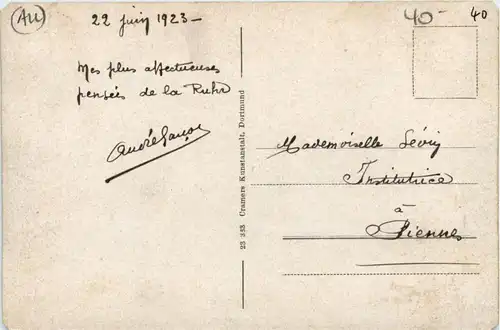 AU
22 juin 1923 -
40 -
40
Mes plus affectueuses
pensées de la Ruhr
André
23 353 Cramers Kunstanstalt, Dortmund
Mademoiselle
Institutrice
à
Piennes